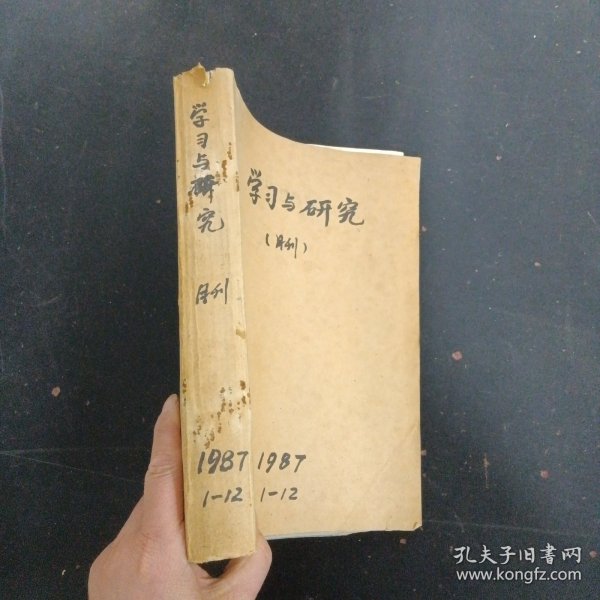 学习与研究
月刊
1987
1-12
学习与研究
(月刊)
1987
1-12
孔夫子旧书网
www.kongfz.com